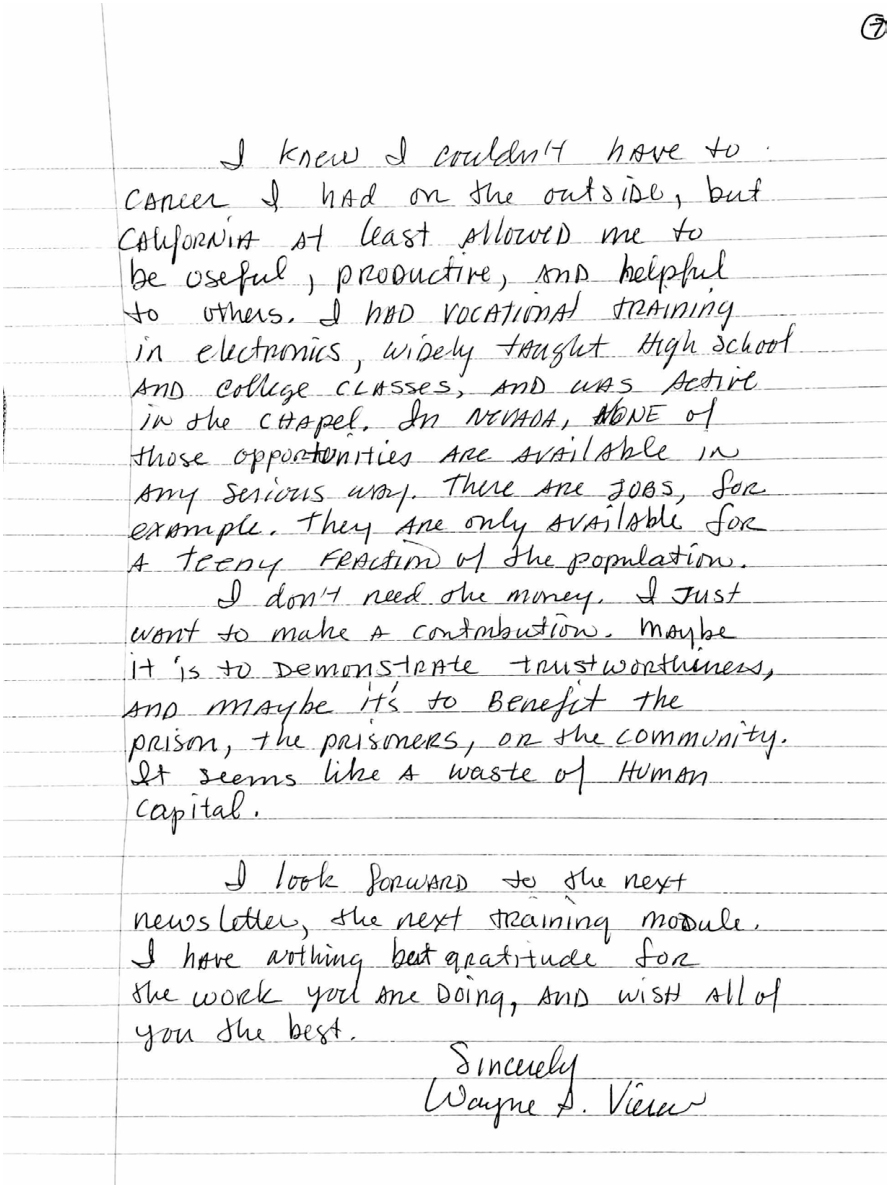 7
I knew I couldn't have to
career I had on the outside, but
California at least allowed me to
be useful, productive, and helpful
to others. I had vocational training
in electronics, widely taught High School
and college classes, and was active
in the chapel. In Nevada, NONE of
those opportunities are available in
any serious way. There are jobs, for
example. They are only available for
a teeny fraction of the population.
I don't need the money. I just
want to make a contribution. Maybe
it 's to demonstrate trustworthiness,
and maybe it's to benefit the
prison, the prisoners, or the community.
It seems like a waste of human
capital.
I look forward to the next
newsletter, the next training module.
I have nothing but gratitude for
the work you are doing, and wish all of
you the best.
Sincerely
Wayne A.